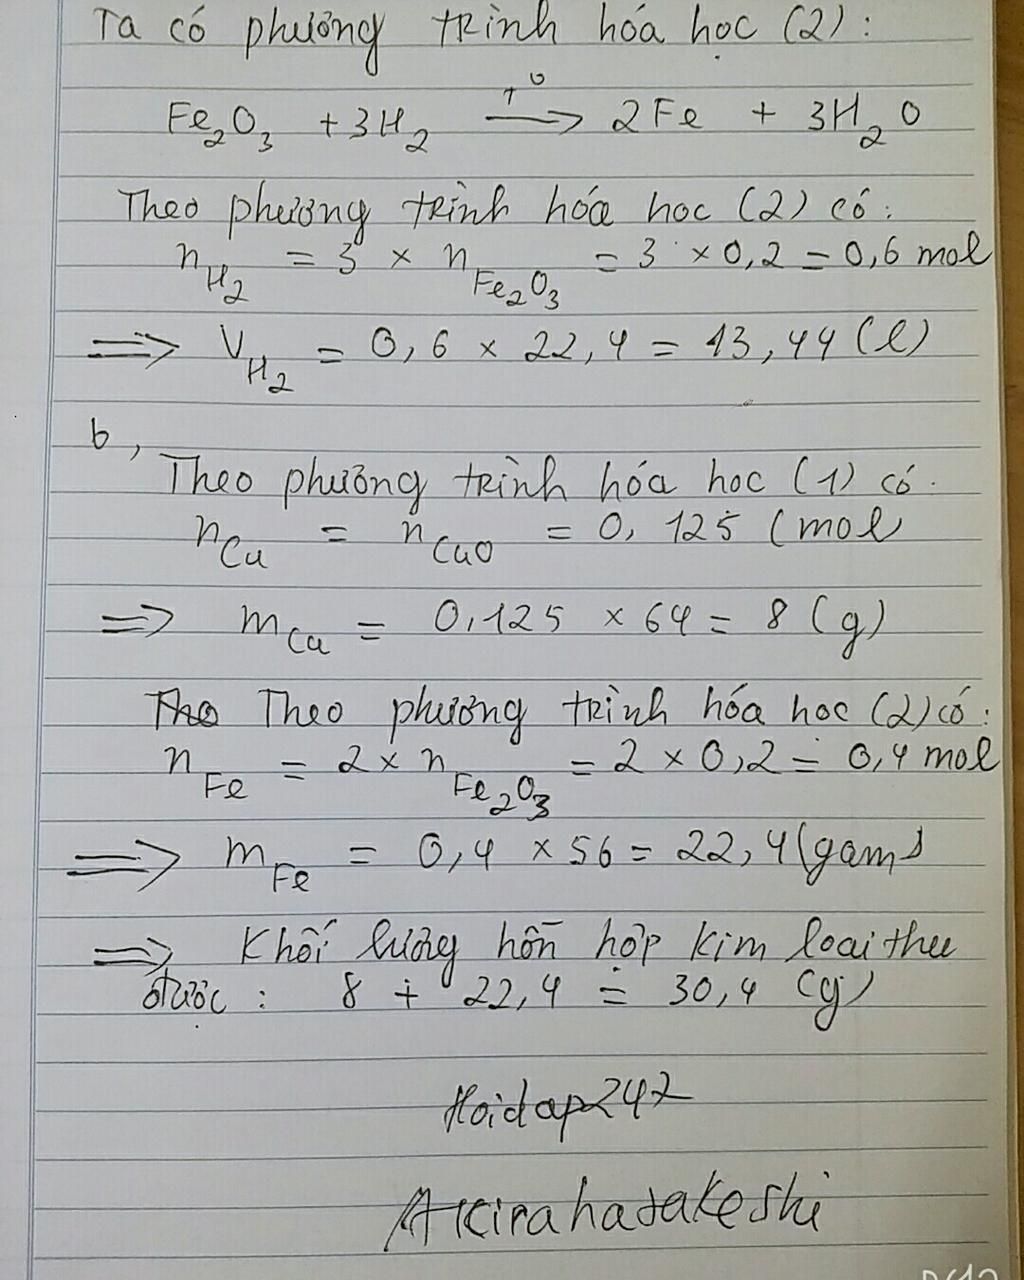 Ta có phương trình hóa học (2):
t⁰
Fe₂O₃ + 3H₂ ⟶ 2Fe + 3H₂O
Theo phương trình hóa học (2) có:
n_H₂ = 3 × n_Fe₂O₃ = 3 × 0,2 = 0,6 mol
⟹ V_H₂ = 0,6 × 22,4 = 13,44 (l)
b,
Theo phương trình hóa học (1) có.
n_Cu = n_CuO = 0,125 (mol
⟹ m_Cu = 0,125 × 64 = 8 (g)
Theo phương trình hóa học (2) có:
n_Fe = 2 × n_Fe₂O₃ = 2 × 0,2 = 0,4 mol
⟹ m_Fe = 0,4 × 56 = 22,4 (gam)
⟹ Khối lượng hỗn hợp kim loại thu
được: 8 + 22,4 = 30,4 (g)
Hoidap242
Akirahatakeshi